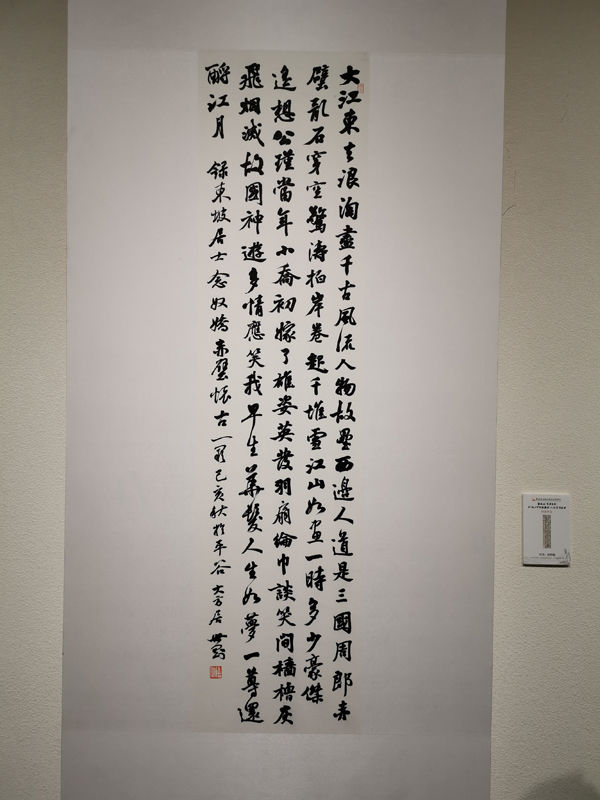 大江東去浪淘盡千古風流人物故壘西邊人道是三國周郎赤
壁亂石穿空驚濤拍岸卷起千堆雪江山如畫一時多少豪傑
遙想公瑾當年小喬初嫁了雄姿英發羽扇綸巾談笑間檣櫓灰
飛烟滅故國神遊多情應笑我早生華髮人生如夢一尊還
酹江月 録東坡居士念奴嬌赤壁懷古一闋己亥秋於平谷大方居